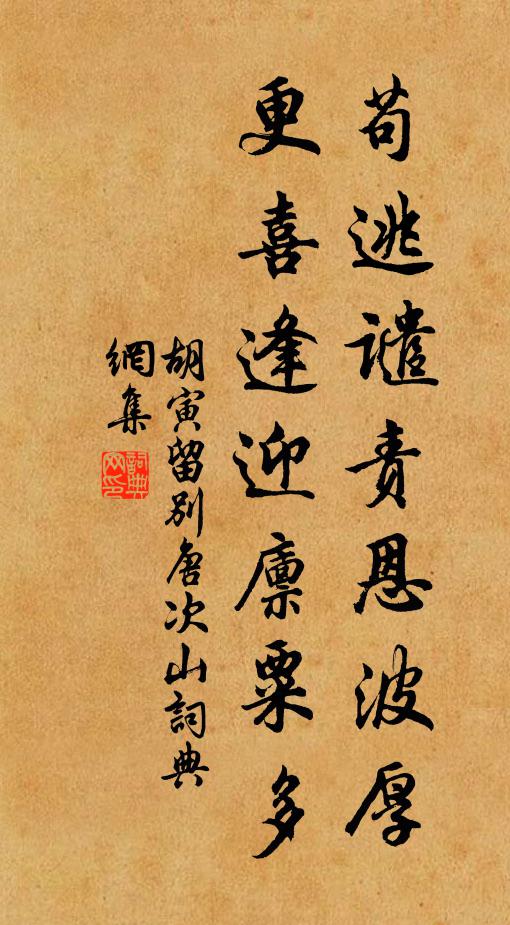 苟逃譴責恩波厚
更喜逢迎廪粟多
胡寅留别唐次山詞典
網集
詞典
網印